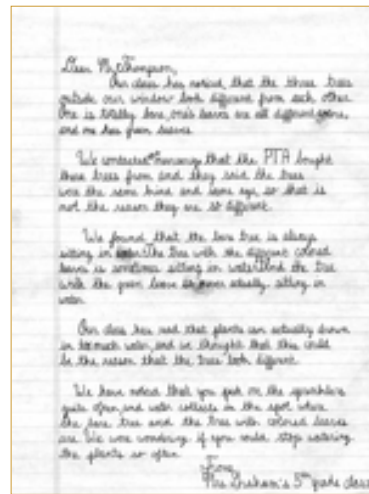 Dear Mr. Thompson,
Our class has noticed that the three trees
outside our window look different from each other.
One is totally bare, one's leaves are all different colors,
and one has green leaves.
We contacted the nursery that the PTA bought
these trees from and they said the trees
were the same kind and same age, so that is
not the reason they are so different.
We found that the bare tree is always
sitting in water. The tree with the different colored
leaves is sometimes sitting in water. And the tree
with the green leaves is never actually sitting in
water.
Our class has read that plants can actually drown
in too much water, and we thought that this could
be the reason that the trees look different.
We have noticed that you put on the sprinklers
quite often and water collects in the spot where
the bare tree and the tree with colored leaves
are. We were wondering if you could stop watering
the plants so often.
From,
Mrs. Graham's 5th grade class